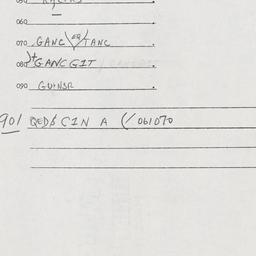 060
070 GANC \ EQ / TANC
080 )+GANCGIT
090 GUINSR
901 QEDS CIN A (/061070